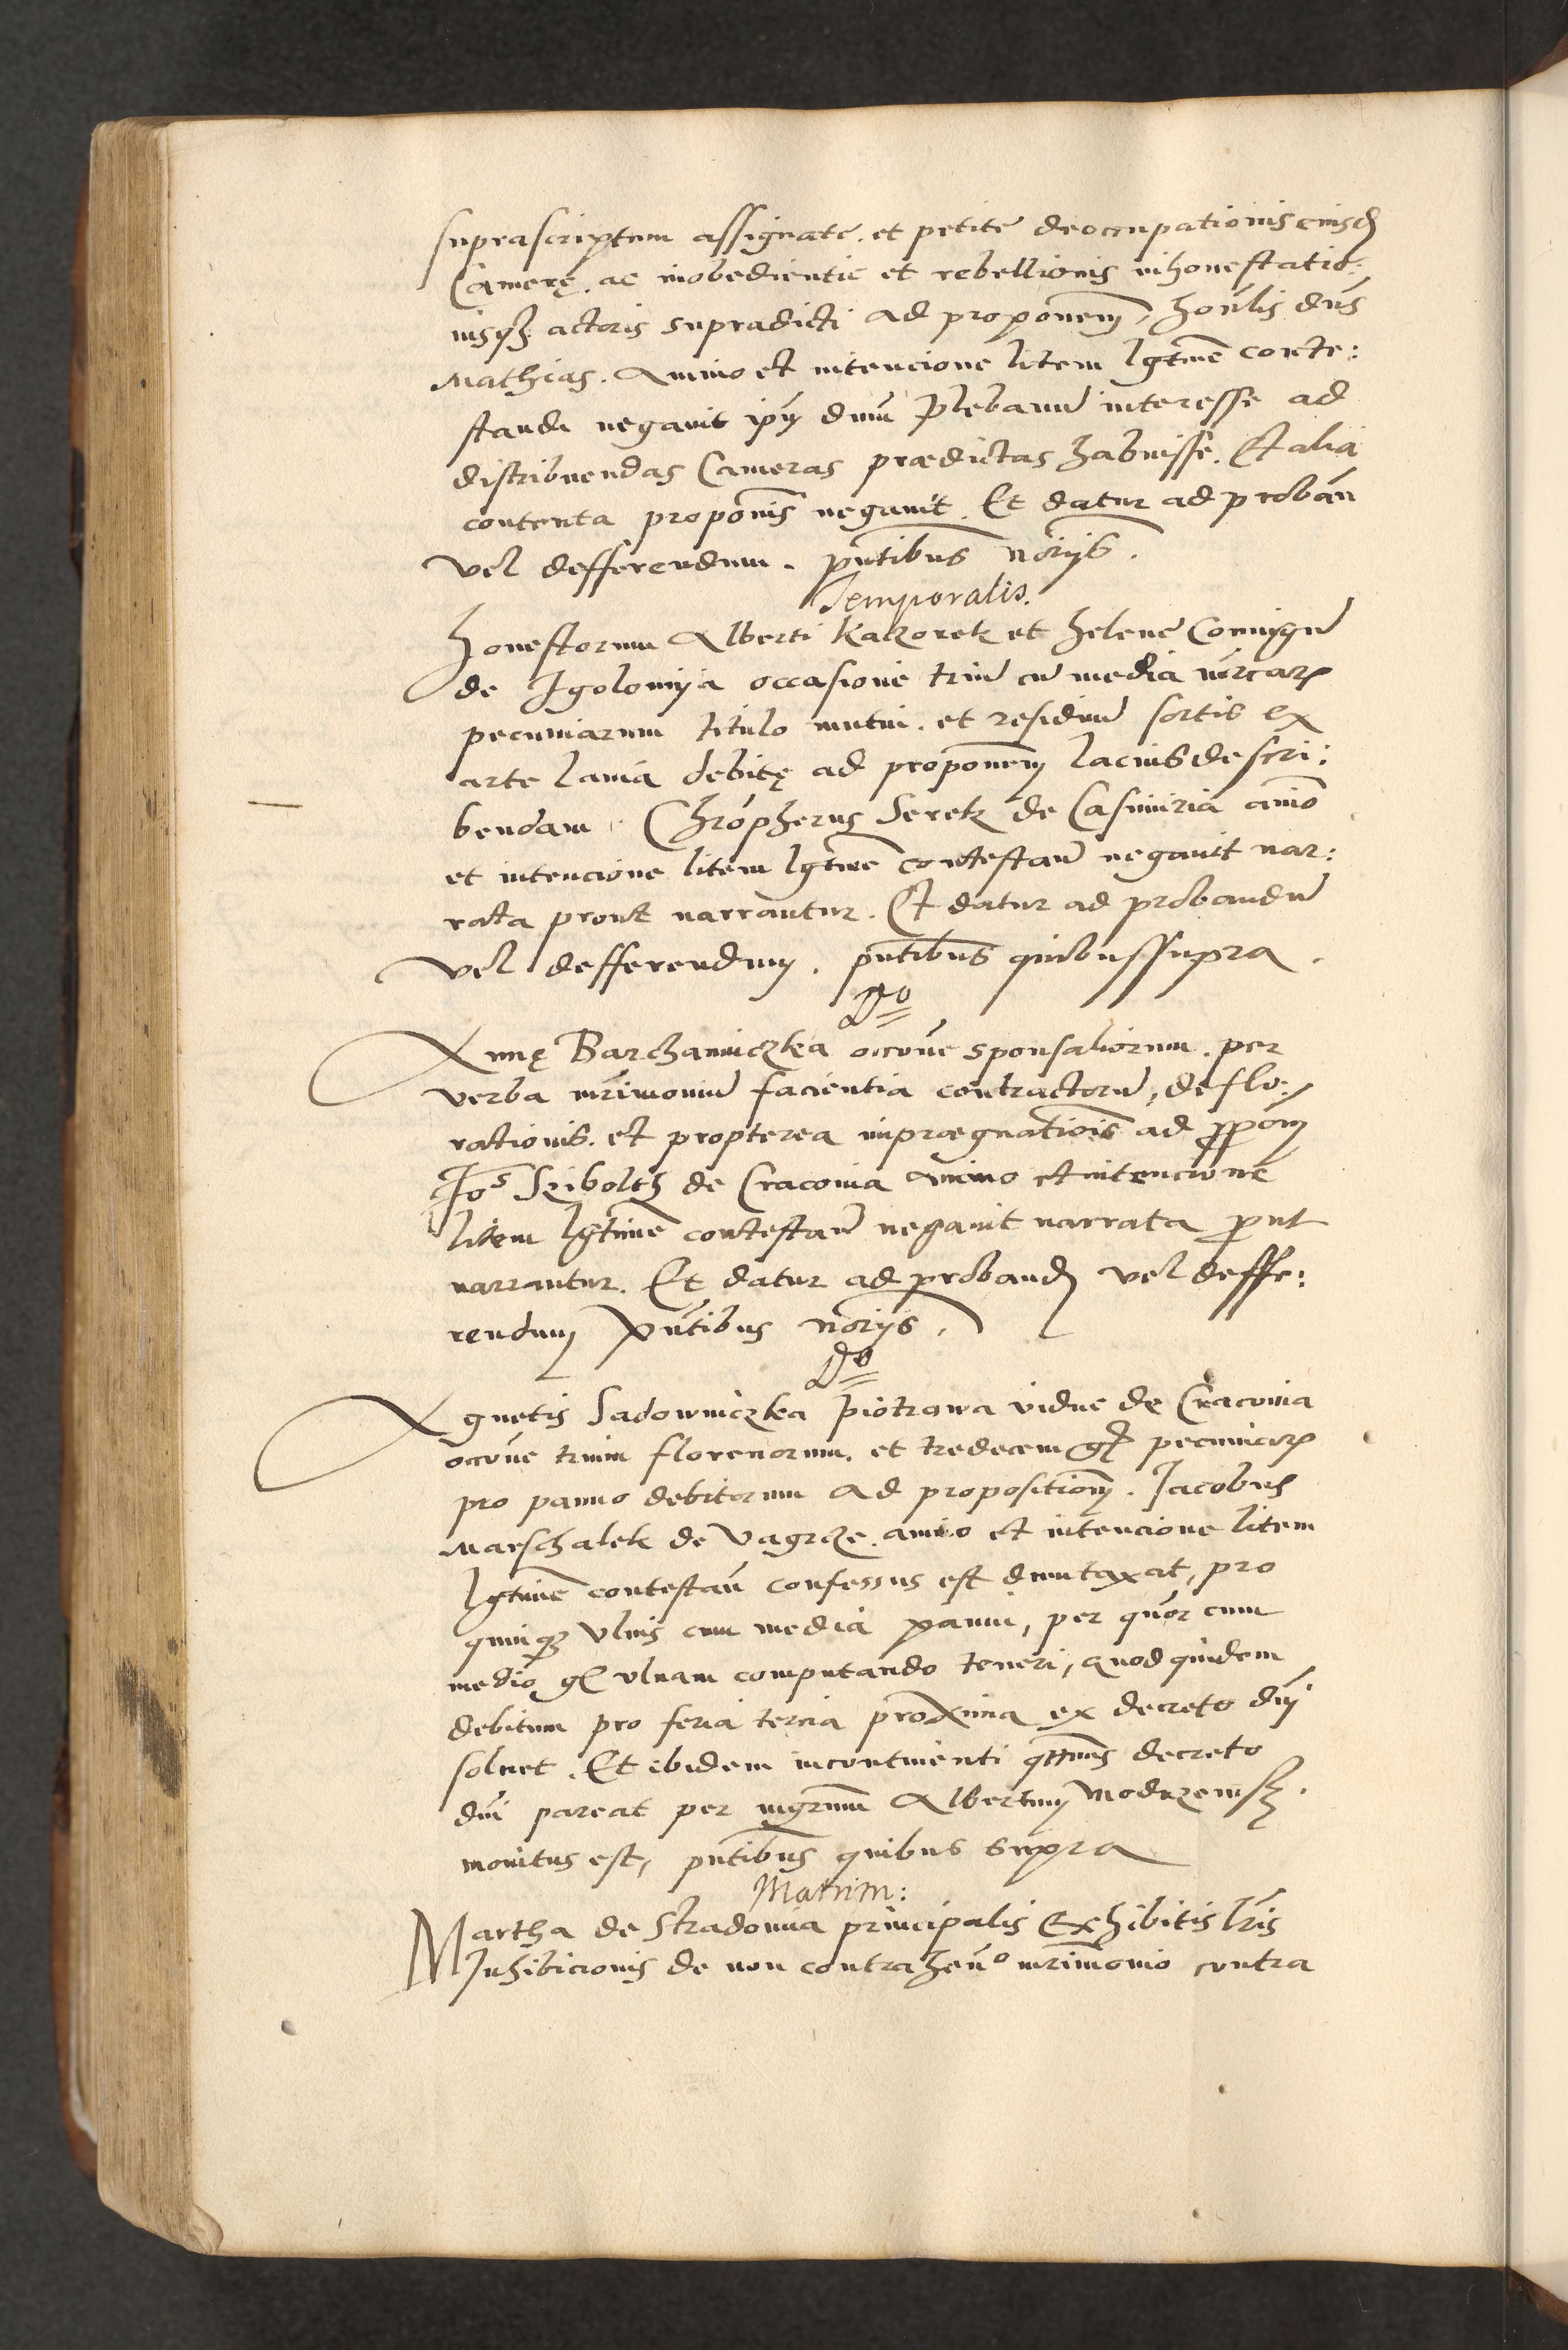 suprascriptum assignate. et petite deoccupationis eiusd
Camerę. ac inobedientie et rebellionis inhonestatio:
nisqȝ actoris supradicti ad proponem, honlis dns
Mathias. Animo et intencione litem lgtme conte:
standi negavit ipm dnum plebanu interesse ad
distribuendas Cameras prædictas habuisse. Et alia
contenta proponis negavit. Et datur ad proban
vel defferendum. pntibus noriis.
Temporalis.
Honestorum Alberti Kaczorek et Helene Coniugu
de Igolomiia occasione triu cu media mrcar
pecuniarum titulo mutui. et residuu sortis ex
arte lania debitę ad proponem lacius descri:
bendam. Chrophorus Serek de Casimiria animo
et intencione litem lgtme contestan negavit nar:
rata prout narrantur. Et datur ad probandu
vel defferendum. pntibus quibussupra.
Do
Annę Barchaniczka occone sponsaliorum. per
verba mrimoniu facientia contractoru, deflo:
rationis. et propterea imprægnationis ad ppom
Jos Szibolth de Cracovia animo et intencione
litem lgtime contestan negavit narrata put
narrantur. Et datur ad proband vel deffe:
rendum pntibus noriis.
Do
Agnetis Sadowniczka Piotrowa vidue de Cracovia
occone trium florenorum. et tredecem gr pecuniar
pro panno debitorum ad propositionem. Jacobus
Marschalek de Vagrcze. animo et intencione litem
lgtime contestan confessus est dumtaxat, pro
quinqȝ ulnis cum media panni, per quor cum
medio gr ulnam computando teneri, quod quidem
debitum pro feria tercia proxima ex decreto dni
solvet. Et ibidem incontinenti qtenus decreto
dni pareat per mgrum Albertum Modrzewsk.
monitus est, pntibus quibus supra
Matrim:
Martha de Stradomia principalis Exhibitis lris
Inhibicionis de non contrahendo mrimonio contra